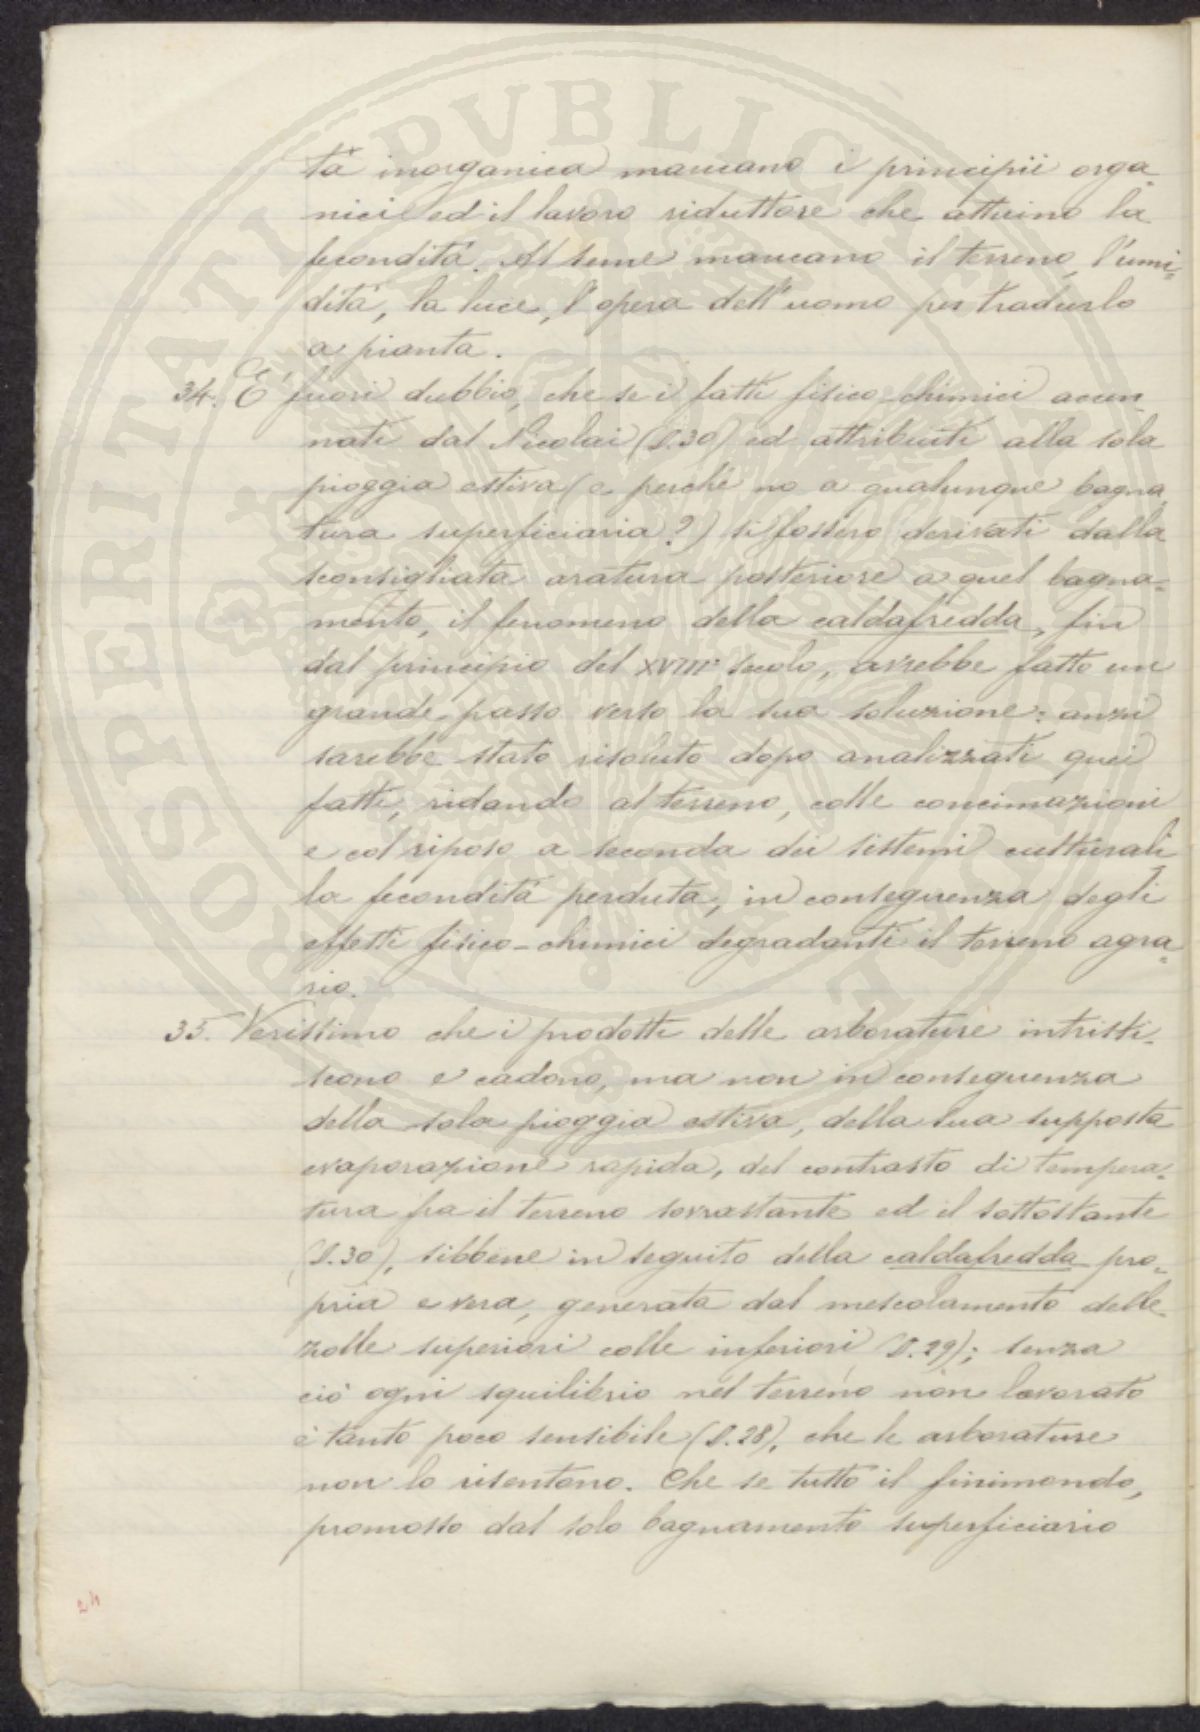 tà inorganica mancano i principii orga-
nici ed il lavoro riduttore che attuino la
fecondità. Al seme mancano il terreno, l'umi-
dità, la luce, l'opera dell'uomo per tradurlo
a pianta.
34. E' fuori dubbio, che se i fatti fisico-chimici accen-
nati dal Nicolai (§.30) ed attribuiti alla sola
pioggia estiva (e perché no a qualunque bagna-
tura superficiaria?) si fossero derivati dalla
sconsigliata aratura posteriore a quel bagna-
mento, il fenomeno della caldafredda, fin
dal principio del XVIII° secolo, avrebbe fatto un
grande passo verso la sua soluzione: anzi
sarebbe stato risoluto dopo analizzati quei
fatti, ridando al terreno, colle concimazioni
e col riposo a seconda dei sistemi culturali
la fecondità perduta, in conseguenza degli
effetti fisico-chimici degradanti il terreno agra-
rio.
35. Verissimo che i prodotti delle arborature intristi-
scono e cadono, ma non in conseguenza
della sola pioggia estiva, della sua supposta
evaporazione rapida, del contrasto di tempera-
tura fra il terreno sovrastante ed il sottostante
(§.30), sibbene in seguito della caldafredda pro-
pria e vera, generata dal mescolamento delle
zolle superiori colle inferiori (§.29); senza
ciò ogni squilibrio nel terreno non lavorato
è tanto poco sensibile (§.28), che le arborature
non lo risentono. Che se tutto il finimondo,
promosso dal solo bagnamento superficiario
24